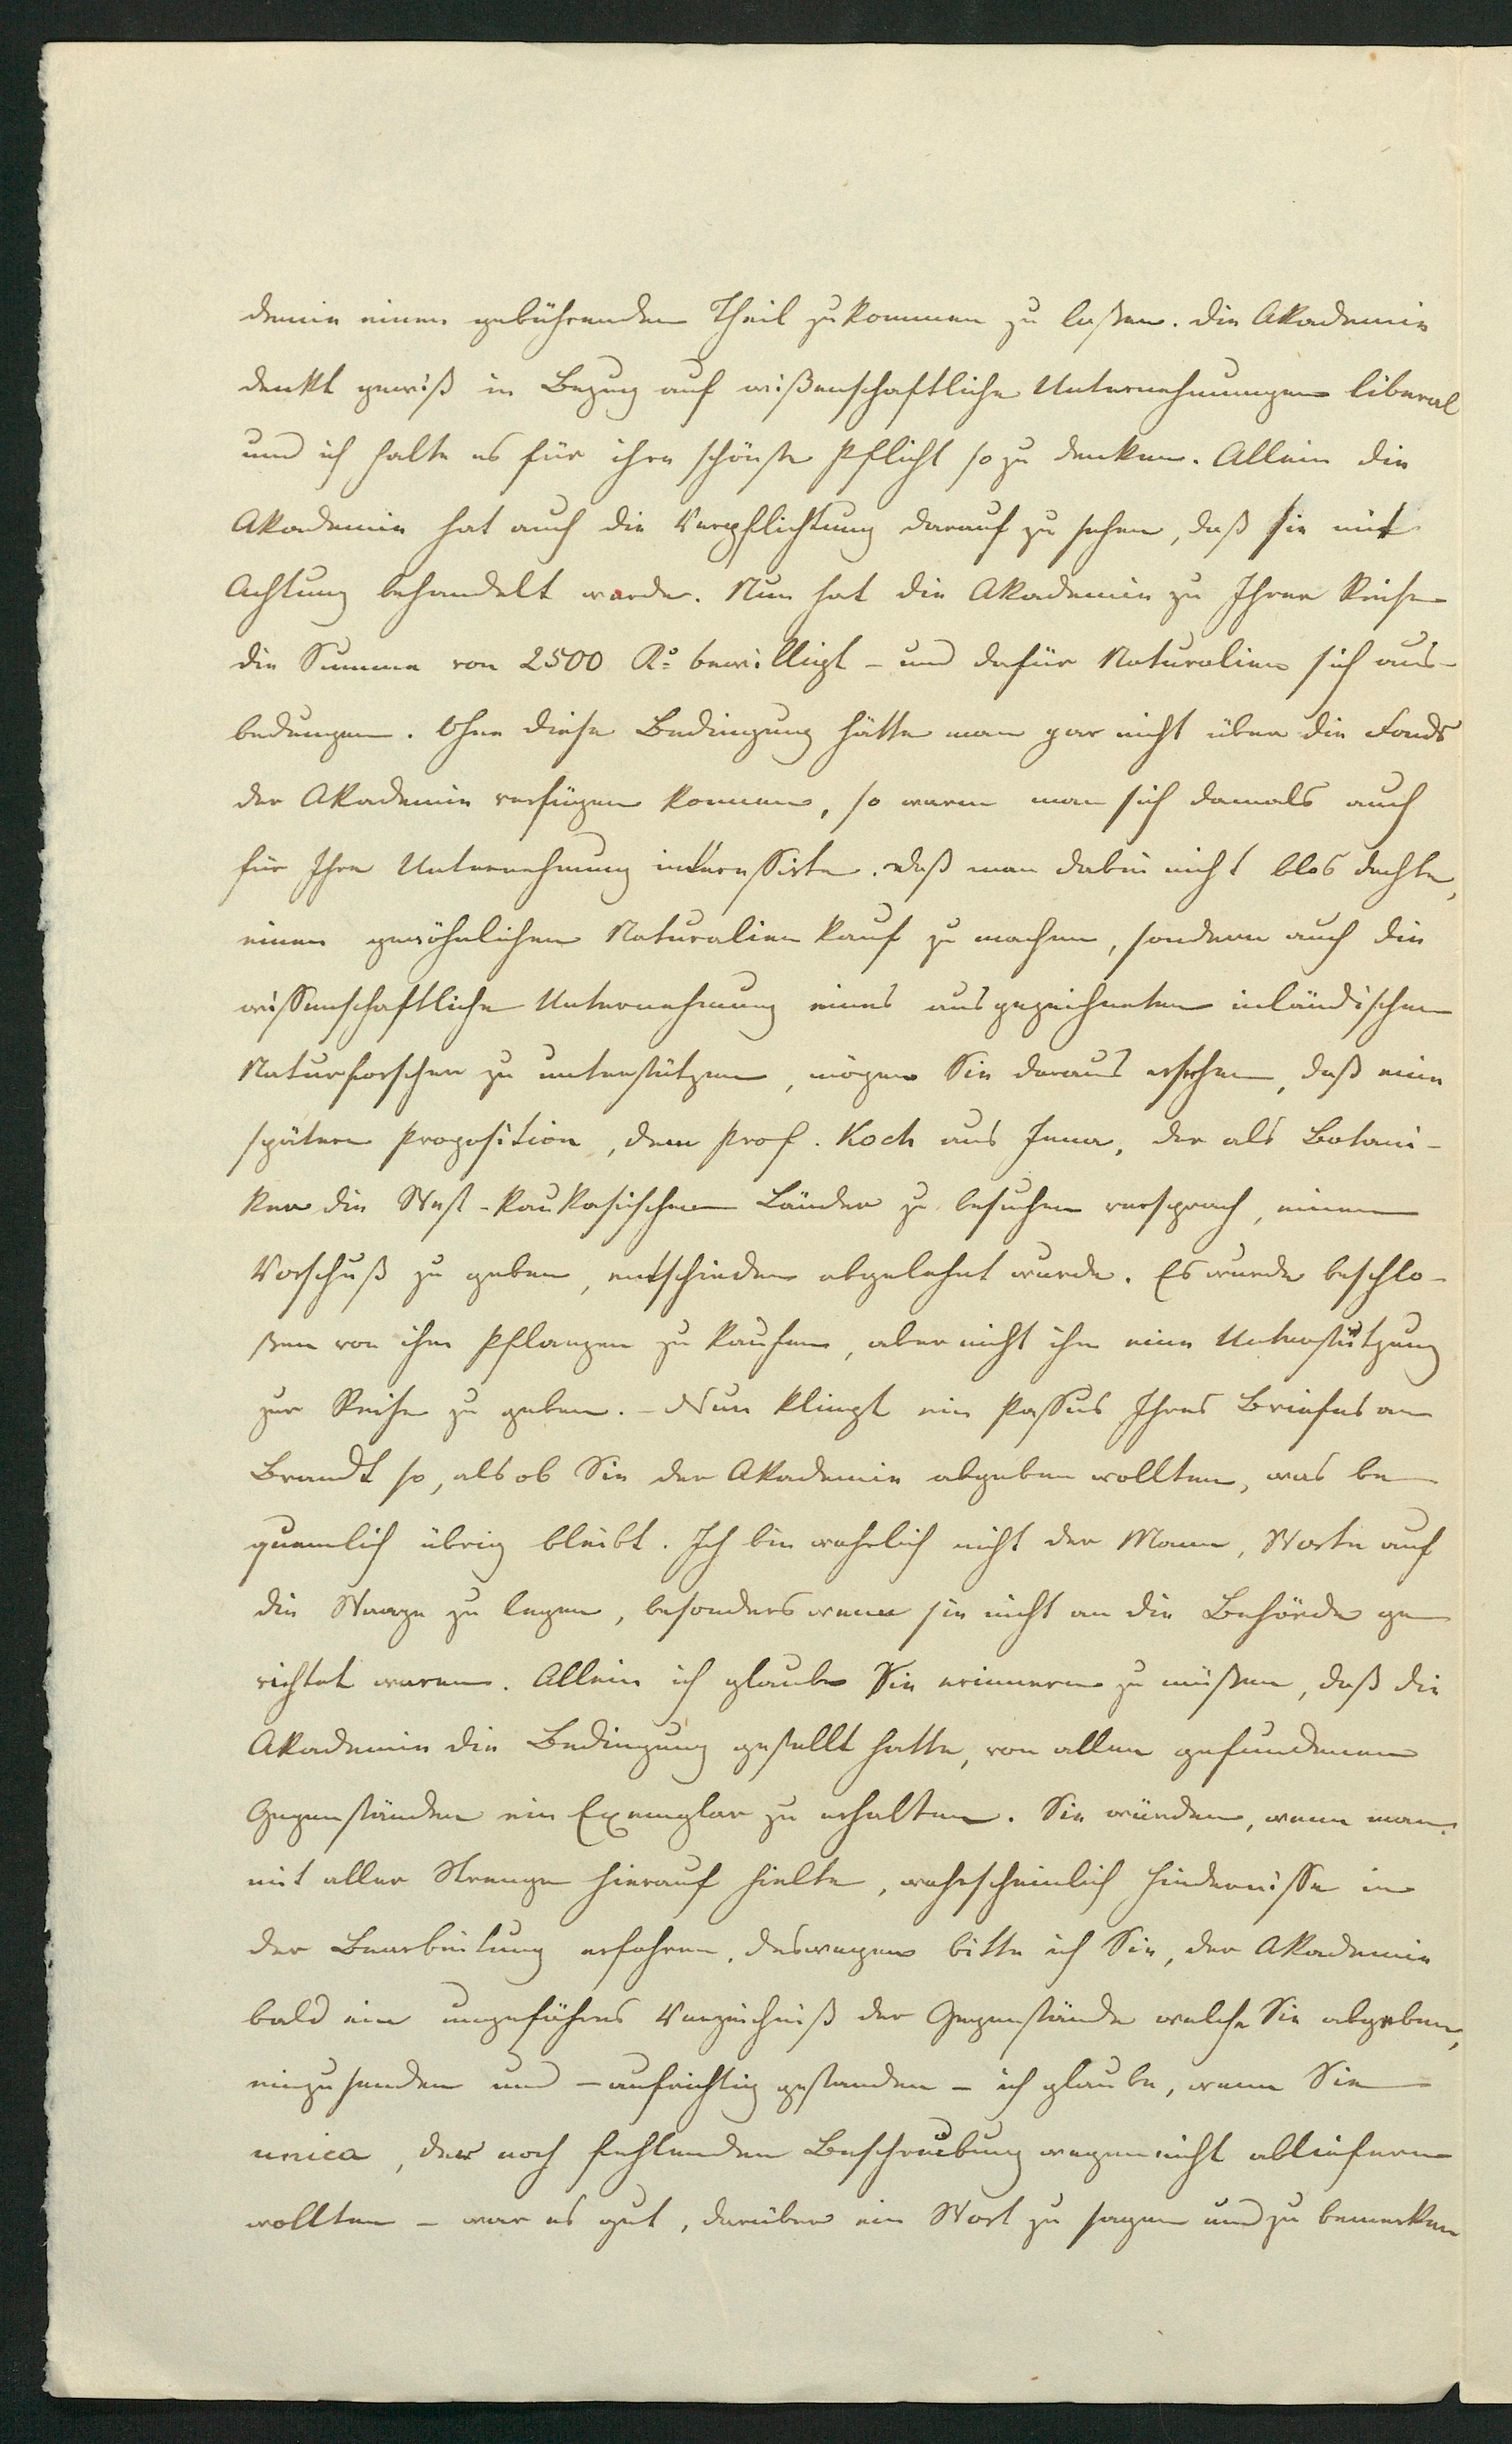 demie einen gebührenden Theil zukommen zu laßen. Die Akademie
denkt gewiß in Bezug auf wißenschaftliche Unternehmungen liberal
und ich halte es für ihre schönste Pflicht so zu denken. Allein die
Akademie hat auch die Verpflichtung darauf zu sehen, daß sie mit
Achtung behandelt werde. Nun hat die Akademie zu Ihrer Reise
die Summe von 2500 R. bewilligt – und dafür Naturalien sich aus-
bedungen. Ohne diese Bedingung hätte man gar nicht über die Fonds
der Akademie verfügen können, so warm man sich damals auch
für Ihre Unternehmung interessirte. Daß man dabei nicht blos dachte,
einen gewöhnlichen Naturalien kauf zu machen, sondern auch die
wissenschaftliche Unternehmung eines ausgezeichneten inländischen
Naturforscher zu unterstützen, mögen Sie daraus ersehen, daß eine
spätere Proposition, dem Prof. Koch aus Jena, der als Botani-
ker die West-kaukasischen Länder zu besuchen versprach, einen
Vorschuß zu geben, entschieden abgelehnt wurde. Es wurde beschlo-
ßen von ihm Pflanzen zu kaufen, aber nicht ihm eine Unterstützung
zur Reise zu geben. – Nun klingt ein Passus Ihres Briefes an
Brandt so, als ob Sie der Akademie abgeben wollten, was be
quemlich übrig bleibt. Ich bin wahrlich nicht der Mann, Worte auf
die Waage zu legen, besonders wenn sie nicht an die Behörde ge
richtet waren. Allein ich glaube Sie erinnern zu müßen, daß die
Akademie die Bedingung gestellt hatte, von allen gefundenen
Gegenständen ein Exemplar zu erhalten. Sie würden, wenn man
mit aller Strenge hierauf hielte, wahrscheinlich Hindernisse in
der Bearbeitung erfahren, deswegen bitte ich Sie, der Akademie
bald ein ungefähres Verzeichniß der Gegenstände welche Sie abgeben,
einzusenden und – aufrichtig gestanden – ich glaube, wenn Sie
unica, der noch fehlenden Beschreibung wegen nicht abliefern
wollten – war es gut, darüber ein Wort zu sagen und zu bemerken